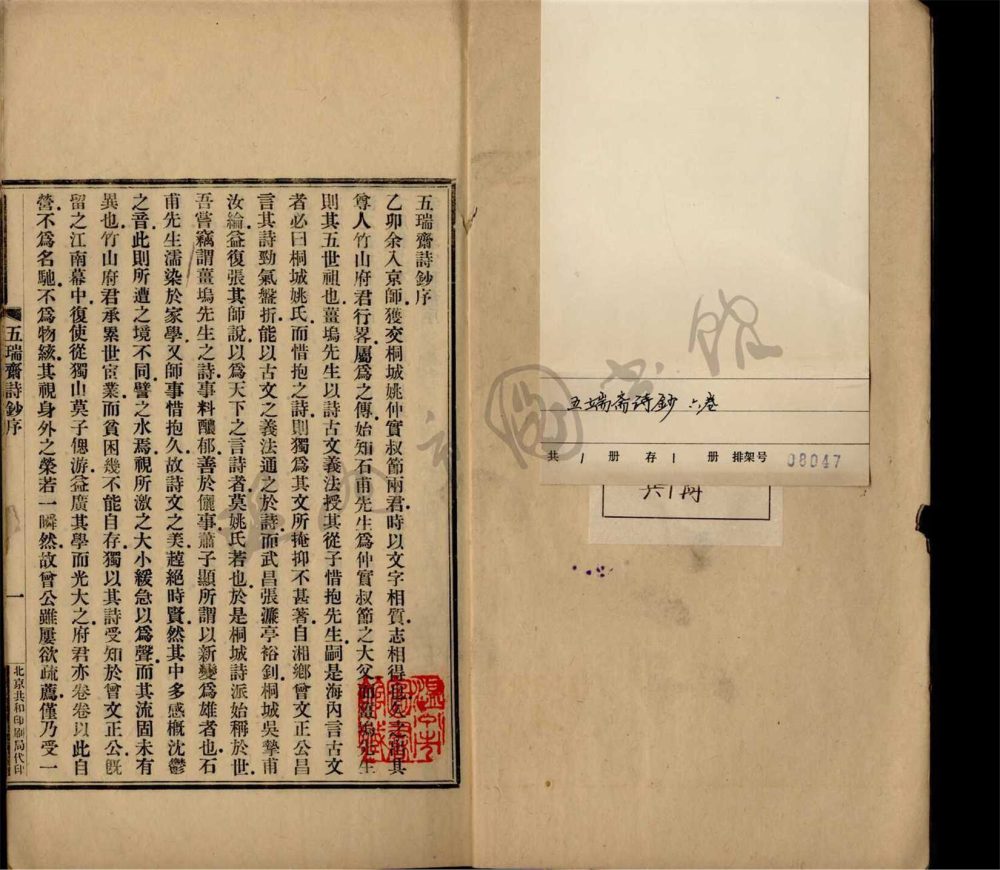 五瑞齋詩鈔序
乙卯余入京師獲交桐城姚仲實叔節兩君時以文字相質志相得也久之出其
尊人竹山府君行畧屬為之傳始知石甫先生為仲實叔節之大父而薑塢先生
則其五世祖也薑塢先生以詩古文義法授其從子惜抱先生嗣是海內言古文
者必曰桐城姚氏而惜抱之詩則獨為其文所掩抑不甚著自湘鄉曾文正公昌
言其詩勁氣盤折能以古文之義法通之於詩而武昌張濂亭裕釗桐城吳摯甫
汝綸益復張其師說以為天下之言詩者莫姚氏若也於是桐城詩派始稱於世
吾嘗竊謂薑塢先生之詩事料醲郁善於儷事蕭子顯所謂以新變為雄者也石
甫先生濡染於家學又師事惜抱久故詩文之美越絕時賢然其中多感慨沈鬱
之音此則所遭之境不同譬之水焉視所激之大小緩急以為聲而其流固未有
異也竹山府君承累世宦業而貧困幾不能自存獨以其詩受知於曾文正公既
留之江南幕中復使從獨山莫子偲游益廣其學而光大之府君亦卷卷以此自
營不為名馳不為物絃其視身外之榮若一瞬然故曾公雖屢欲疏薦僅乃受一
五瑞齋詩鈔序
一
北京共和印刷局代印
五端斋诗鈔 六卷
共 1 册 存 1 册 排架号 08047
共1册